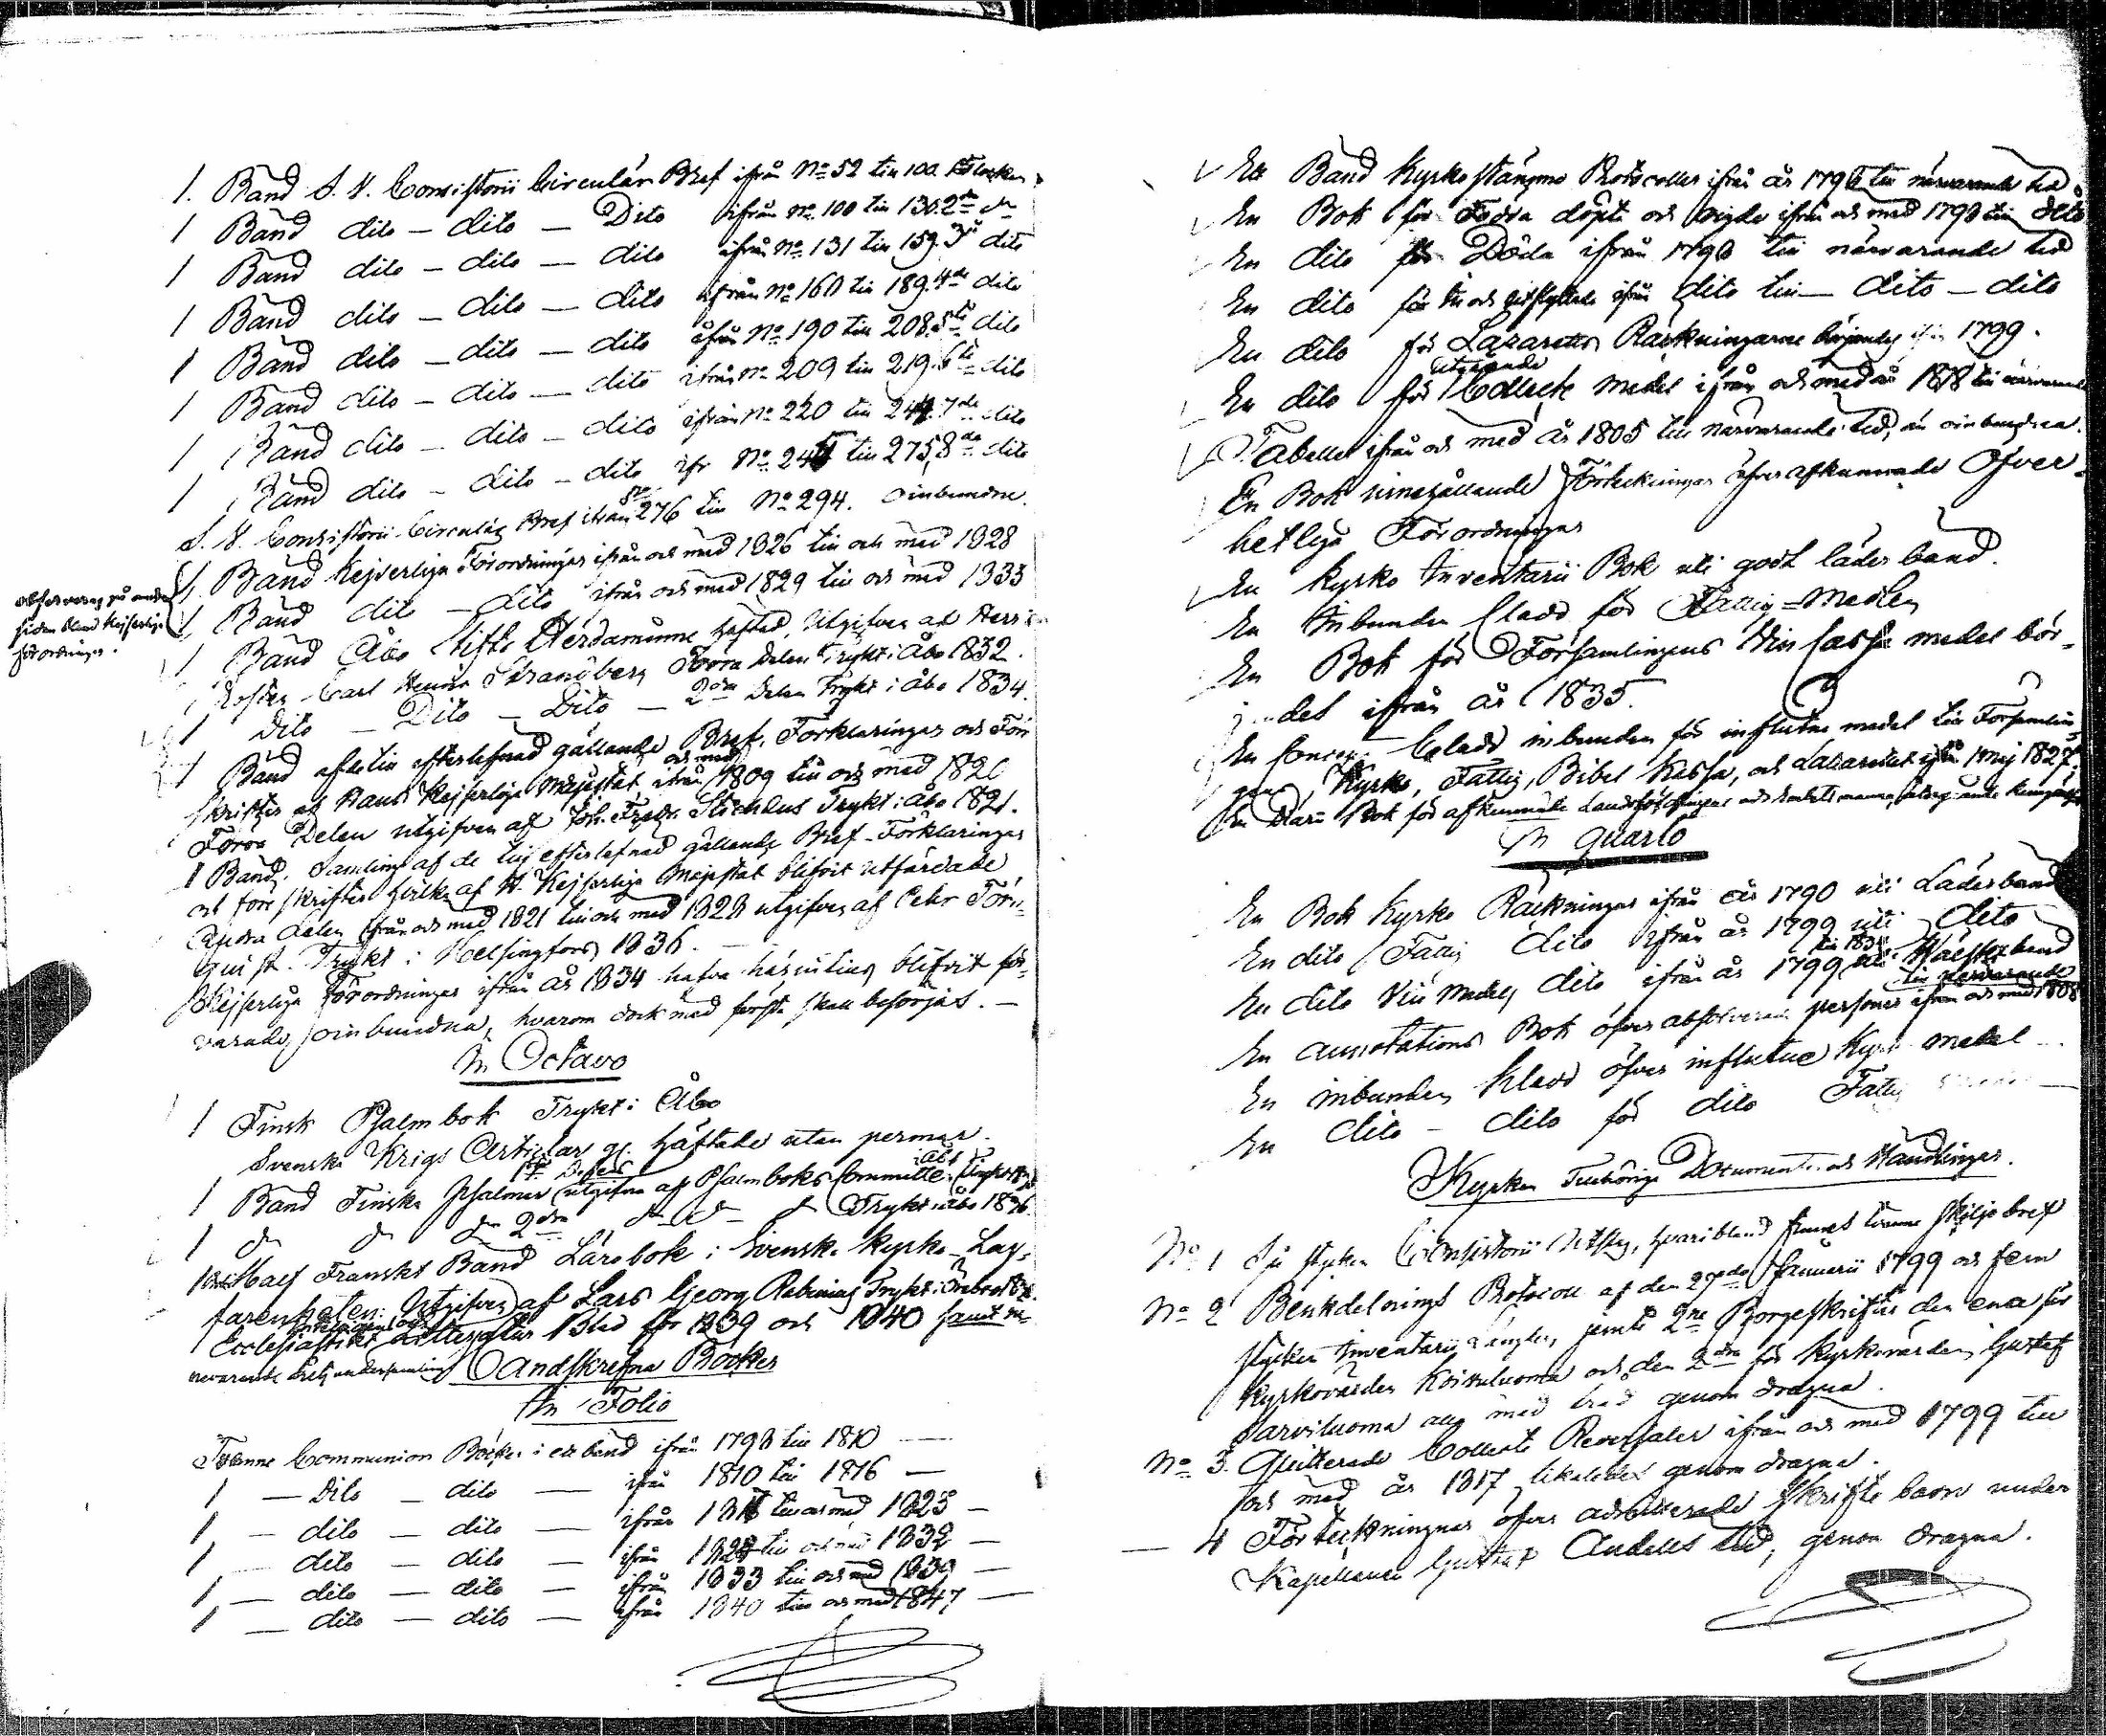 1. Band S. V. Consistorii Circulär Bref ifrån No 52 till 100.
1 Band dito – dito – Dito ifrån No 100 till 130. 2de do
1 Band dito – dito – dito ifrån No 131 till 159. 3je dito
1 Band dito – dito – dito ifrån No 160 till 189. 4de dito
1 Band dito – dito – dito ifrån No 190 till 208. 5te dito
1 Band dito – dito – dito ifrån No 209 till 219. 6te dito
1 Band dito – dito – dito ifrån No 220 till 244. 7de dito
1 Band dito – dito – dito ifr No 245 till 275, 8de dito
S. V. Consistorii Circulär Bref ifrån 276 till No 294. oinbundne.
1. Band Kejserliga Förordningar ifrån och med 1826 till och med 1828
1 Band dito – dito ifrån och med 1829 till och med 1833
på andra
sidan bland Kejserliga
förordningar.
1 Band Åbo Stifts Herdaminne häftad, Utgifven af Herr
Carl Henric Strandberg Förra Delen Tryckt i Åbo 1832.
1 Dito – Dito – Dito – 2dra Delen Tryckt i Åbo 1834.
1 Band af de till efterlefnad gällande Bref, Förklaringar och För
skrifter af Hans Kejserliga Majestät ifrån och med 1809 till och med 1820
Förra Delen utgifven af Joh. Fredr. Stichæus Tryckt i Åbo 1821.
1 Band, Samling af de till efterlefnad gällande Bref – Förklaringar
och föreskrifter hvilka af H. Kejserliga Majestät blifvit utfärdade
Andra Delen ifrån och med 1821 till och med 1828 utgifven af Petr Törn-
quist. Tryckt i Helsingfors 1836. –
Kejserliga Förordningar ifrån år 1834 hafva härintill blifvit för-
varade, oinbundna, hvarom dock med första skall besörjas. –
In Octavo
1 Finsk Psalmbok Tryckt i Åbo
Svenska Krigs Artiklar häftade utan permar.
1 Band Finska Psalmer utgifne af Psalmboks Committé
1 do do do 2dra do do do Tryckt i Åbo 1836.
1 Half Franskt Band Lärobok i Svenska Kyrko-Lag-
farenheten: Utgifven af Lars Georg Rabenius Tryckt i Örebro
Ecclesiastikt Litteratur Blad för 1839 och 1840 samt
Handskrefna Böcker
In Folio
Tvenne Communion Böcker i ett band ifrån 1798 till 1810 —
1 — Dito – dito — ifrån 1810 till 1816 —
1 – dito – dito — ifrån 1817 till och med 1823 –
1 – dito – dito – ifrån 1824 till och med 1832 –
1 – dito – dito – ifrån 1833 till och med 1839 –
1 – dito – dito – ifrån 1840 till och med 1847 –
Ett Band Kyrkostämmo Protocoller ifrån år 1798 till närvarande tid
En Bok för Födda döpta och vigde ifrån och med 1798 till dito
En dito för Döda ifrån 1798 till närvarande tid
En dito för in och utflyttade ifrån dito till – dito – dito
En dito för Lazaretts Räkningarne börjandes ifrån 1799.
En dito för utgående Collect medel ifrån och med år 1818 till närvarande
Tabeller ifrån och med år 1805 till närvarande tid, än oinbundna.
En Bok innehållande Förteckningar öfver afkunnade Öfver-
hetliga Förordningar
En Kyrko Inventarii Bok uti godt läder band.
En Inbunden Cladd för Fattig-Medlen
En Bok för Församlingens Vin Cassa medel bör-
jandes ifrån år 1835.
En Cladd inbunden för influtne medel till Församlin-
gens Kyrko, Fattig, Bibel Kassa, och Lazarettet ifrån 1 Maj 1827.
En Diarii Bok för afkunnade Landshöfdingens och Embetsmanna
In Quarto
En Bok Kyrko Räkningar ifrån år 1790 uti Läderband
En dito Fattig dito ifrån år 1799 uti dito
En dito Vin Medlen dito ifrån år 1799 till 1834
En Annotations Bok öfver absolverade personer ifrån och med 1808 till närvarande
En inbunden Kladd öfver influtne Kyrko medel
En dito – dito för dito Fattig
Kyrkan Tillhörige Documenter och Handlingar.
No 1 Sju stycken Consistorii Utslag, hvaribland finnes tvänne skiljobref
No 2 Bänkdelnings Protocoll af den 27de Januarii 1799 och fem
stycken Inventarii Längder, jemte 2ne Borgeskrifter den ena för
Kyrkovärden Koivuluoma och den 2dra för Kyrkovärden Gustaf
Sarviluoma all med tråd genom dragna.
No 3. Quitterade Collect Reversaler ifrån och med 1799 till
och med år 1817 likaledes genom dragna.
— 4 Förteckningar öfver admitterade Skriftebarn under
Kapellanen Gustaf Andells tid, genom dragna.